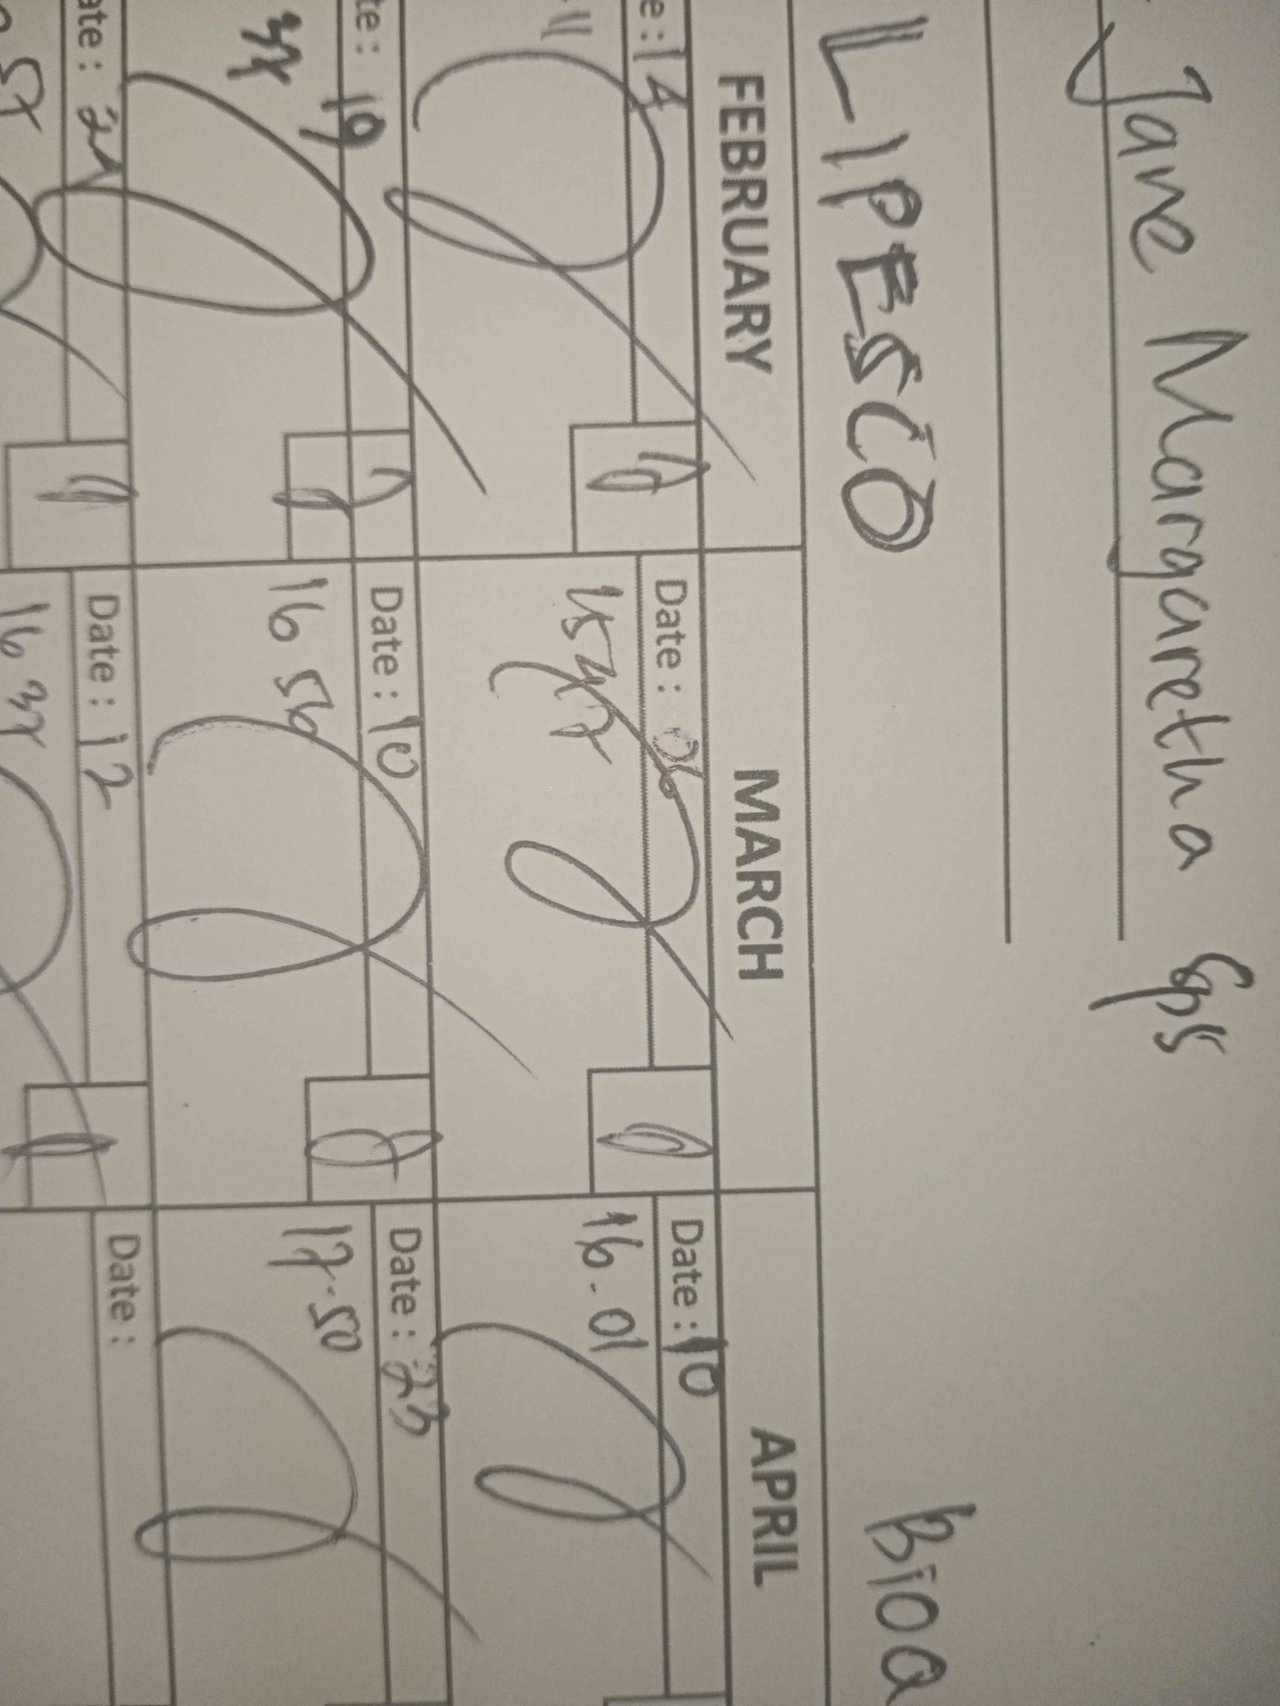 Jane Margaretha Eps
LIPESCO Bioa
FEBRUARY MARCH APRIL
e: 14 Date : 06 Date : 10
11 15 47 16.01
te: 19 Date : 10 Date : 23
37 16 56 17.50
ate : 21 Date : 12 Date :
57 16 37